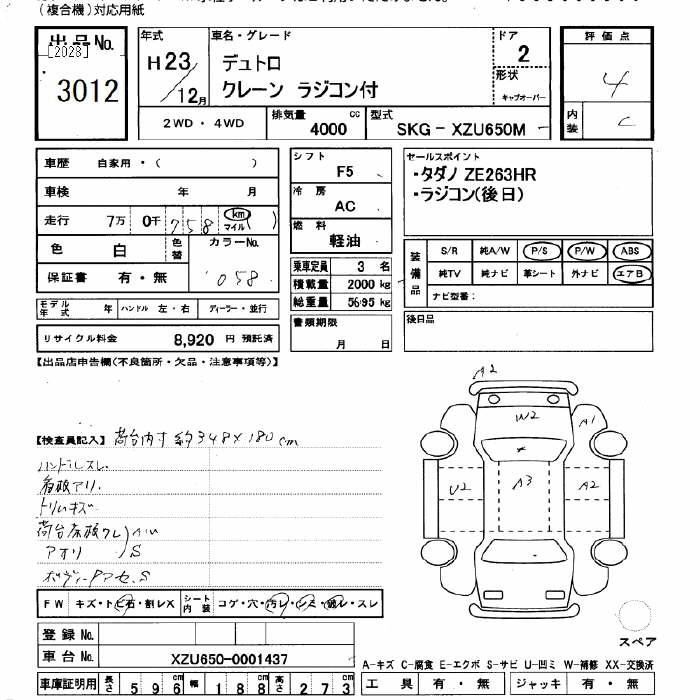 (複合機)対応用紙
出品No.
[2028]
3012
年式
H23/12月
車名・グレード
デュトロ
クレーン ラジコン付
ドア
2
形状
キャブオーバー
評価点
4
内装
C
2WD・4WD
排気量
4000 cc
型式
SKG-XZU650M
車歴 自家用・( )
車検 年 月
走行 7万 0千 758 km マイル ( )
色 白 色替 カラーNo.
058
保証書 有・無
モデル年式 年 ハンドル 左・右 ディーラー・並行
リサイクル料金 8,920 円 預託済
シフト
F5
冷房
AC
燃料
軽油
乗車定員 3 名
積載量 2000 kg
総重量 5695 kg
書類期限
月 日
セールスポイント
・タダノ ZE263HR
・ラジコン(後日)
装備品
S/R 純A/W P/S P/W ABS
純TV 純ナビ 革シート 外ナビ エアB
ナビ型番:
後日品
【出品店申告欄(不良箇所・欠品・注意事項等)】
【検査員記入】 荷台内寸 約348×180cm
ハンドルスレ
看板アリ
トリムキズ
アオリ S
A2
W2
A1
U2
A3
A2
スペア
FW キズ・トビ石・割レX シート内装 コゲ・穴・汚レ・シミ・破レ・スレ
登録No.
車台No. XZU650-0001437
車庫証明用 長さ 596cm 幅 188cm 高さ 273cm
A-キズ C-腐食 E-エクボ S-サビ U-凹ミ W-補修 XX-交換済
工具 有・無 ジャッキ 有・無